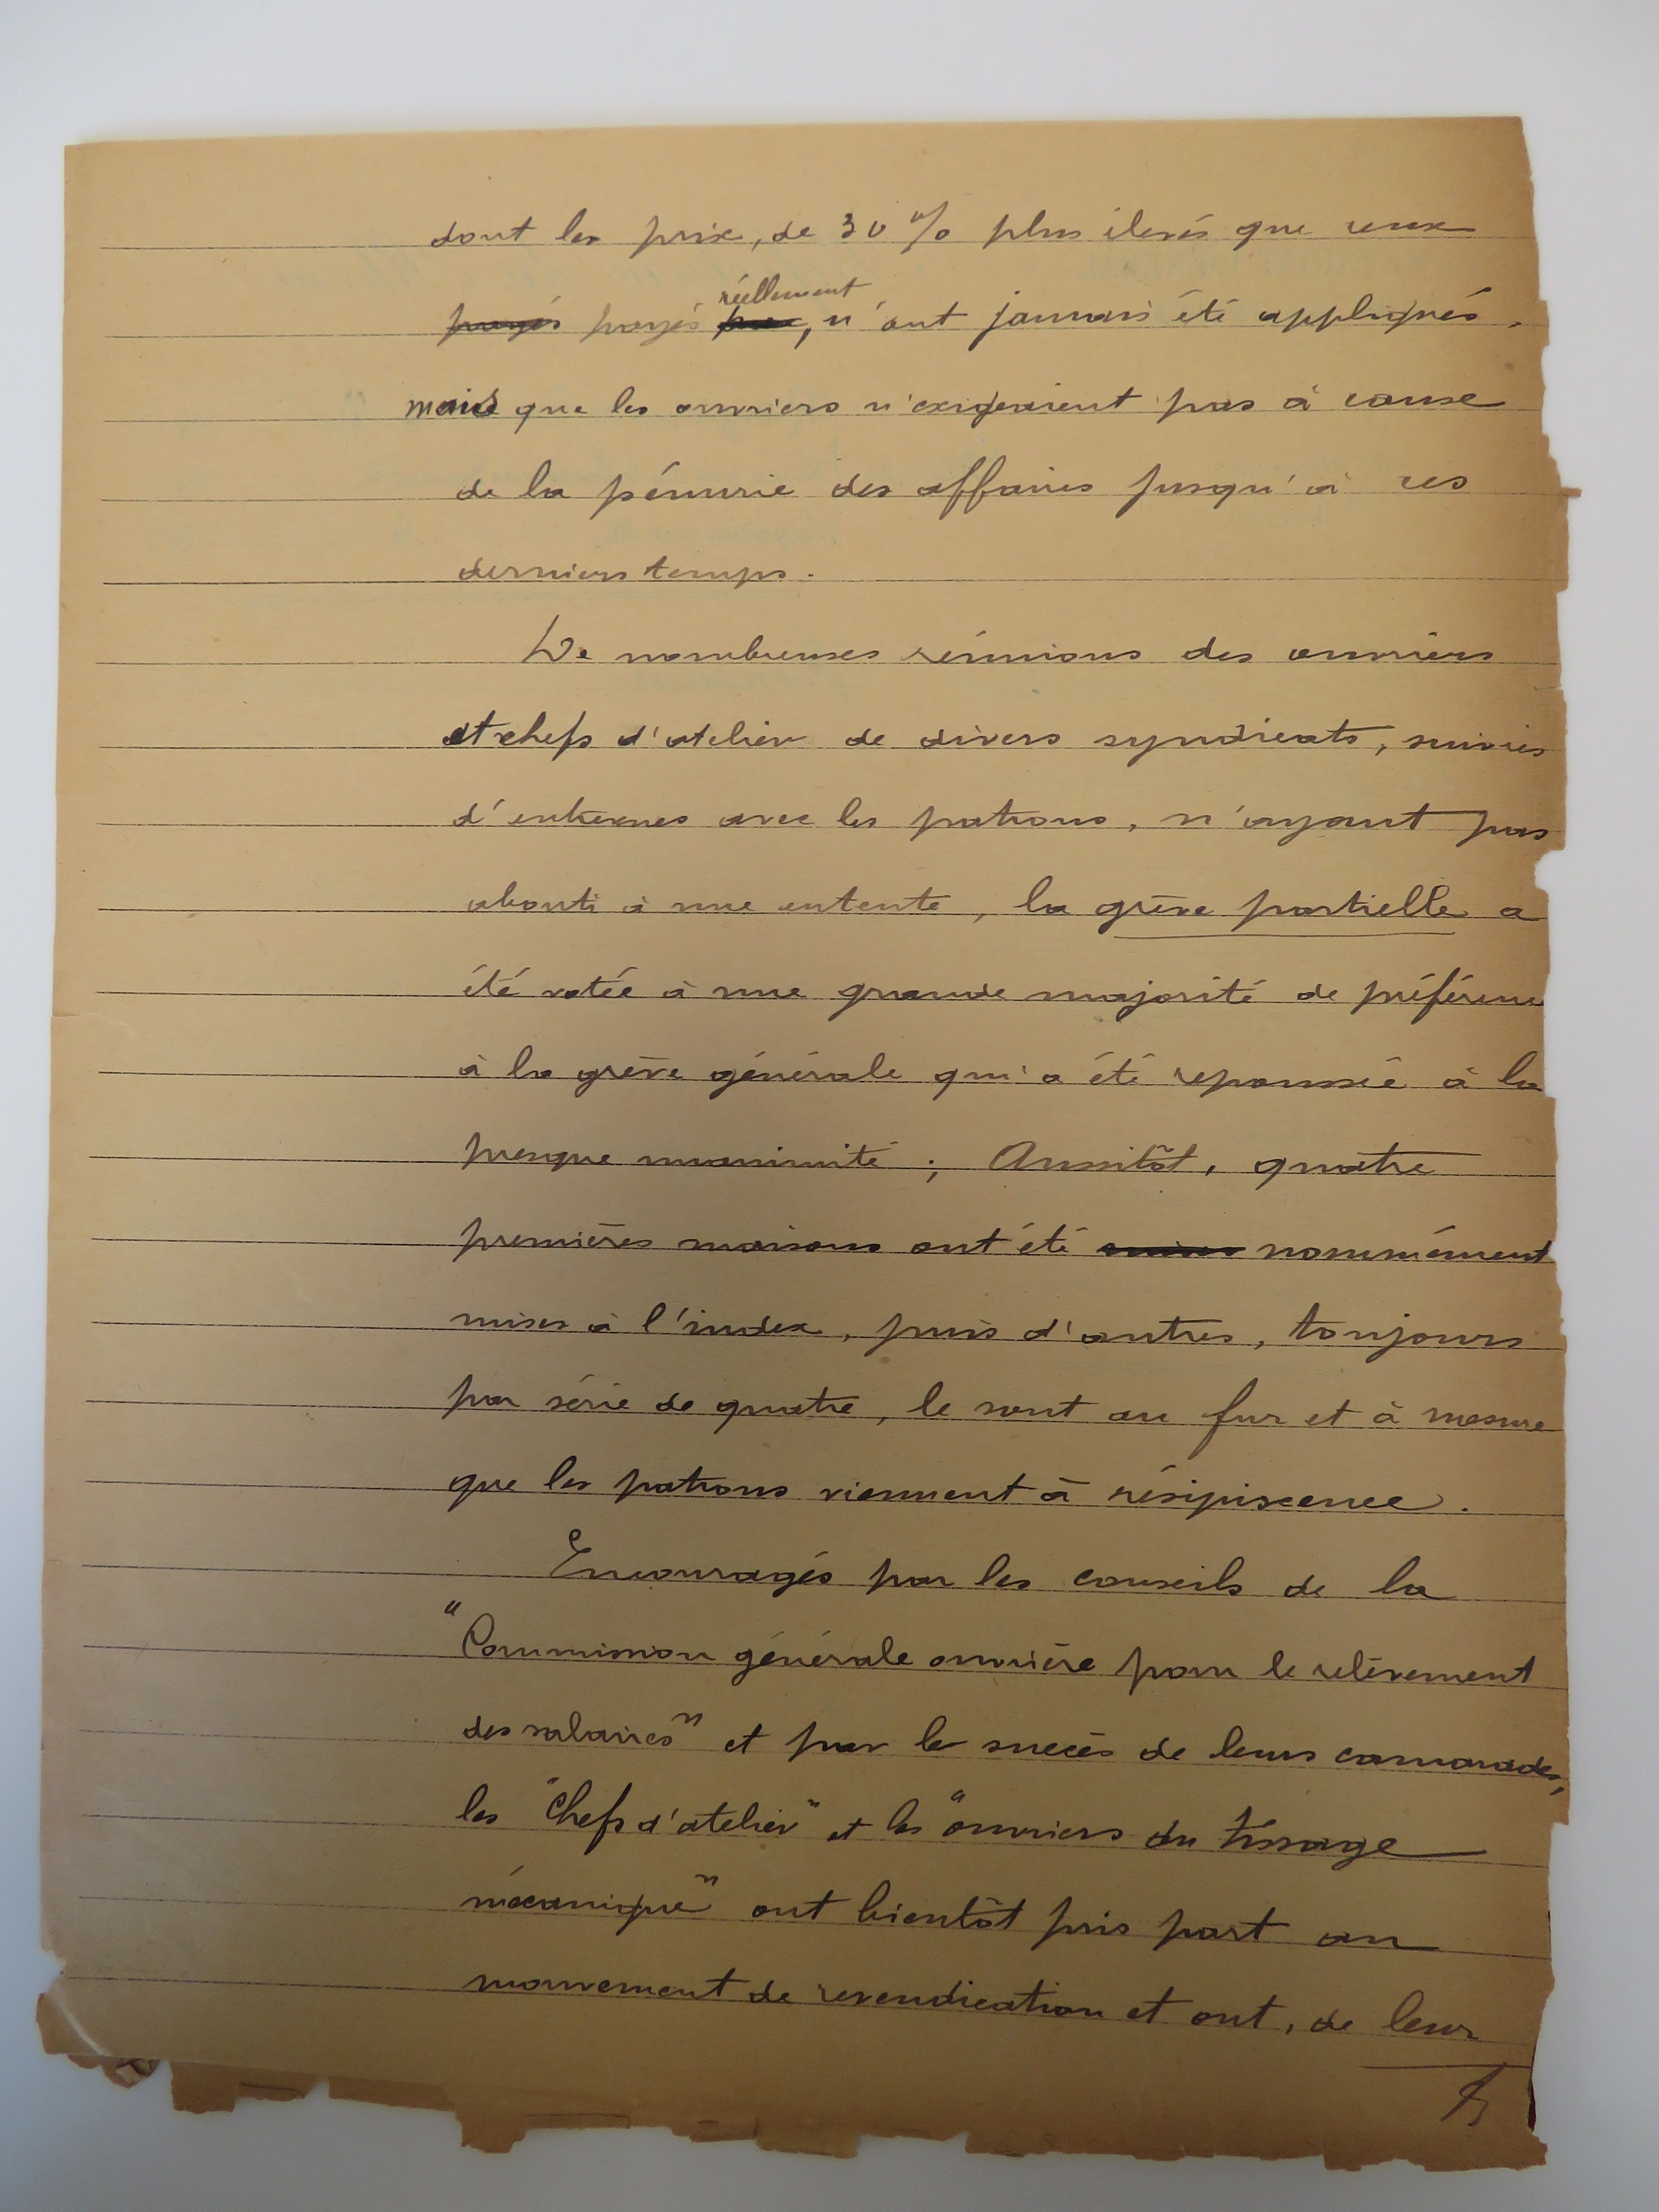 dont les prix, de 30 % plus élevés que ceux
payés payés réellement, n'ont jamais été appliqués,
mais que les ouvriers n'exigeaient pas à cause
de la pénurie des affaires jusqu'à ces
derniers temps.
De nombreuses réunions des ouvriers
et chefs d'atelier de divers syndicats, suivies
d'entrevues avec les patrons, n'ayant pas
abouti à une entente, la grève partielle a
été votée à une grande majorité de préférence
à la grève générale qui a été repoussée à la
presque unanimité ; Aussitôt, quatre
premières maisons ont été nommément
mises à l'index, puis d'autres, toujours
par série de quatre, le sont au fur et à mesure
que les patrons viennent à résipiscence.
Encouragés par les conseils de la
"Commission générale ouvrière pour le relèvement
des salaires" et par le succès de leurs camarades,
les "chefs d'atelier" et les "ouvriers du tissage
mécanique" ont bientôt pris part au
mouvement de revendication et ont, de leur